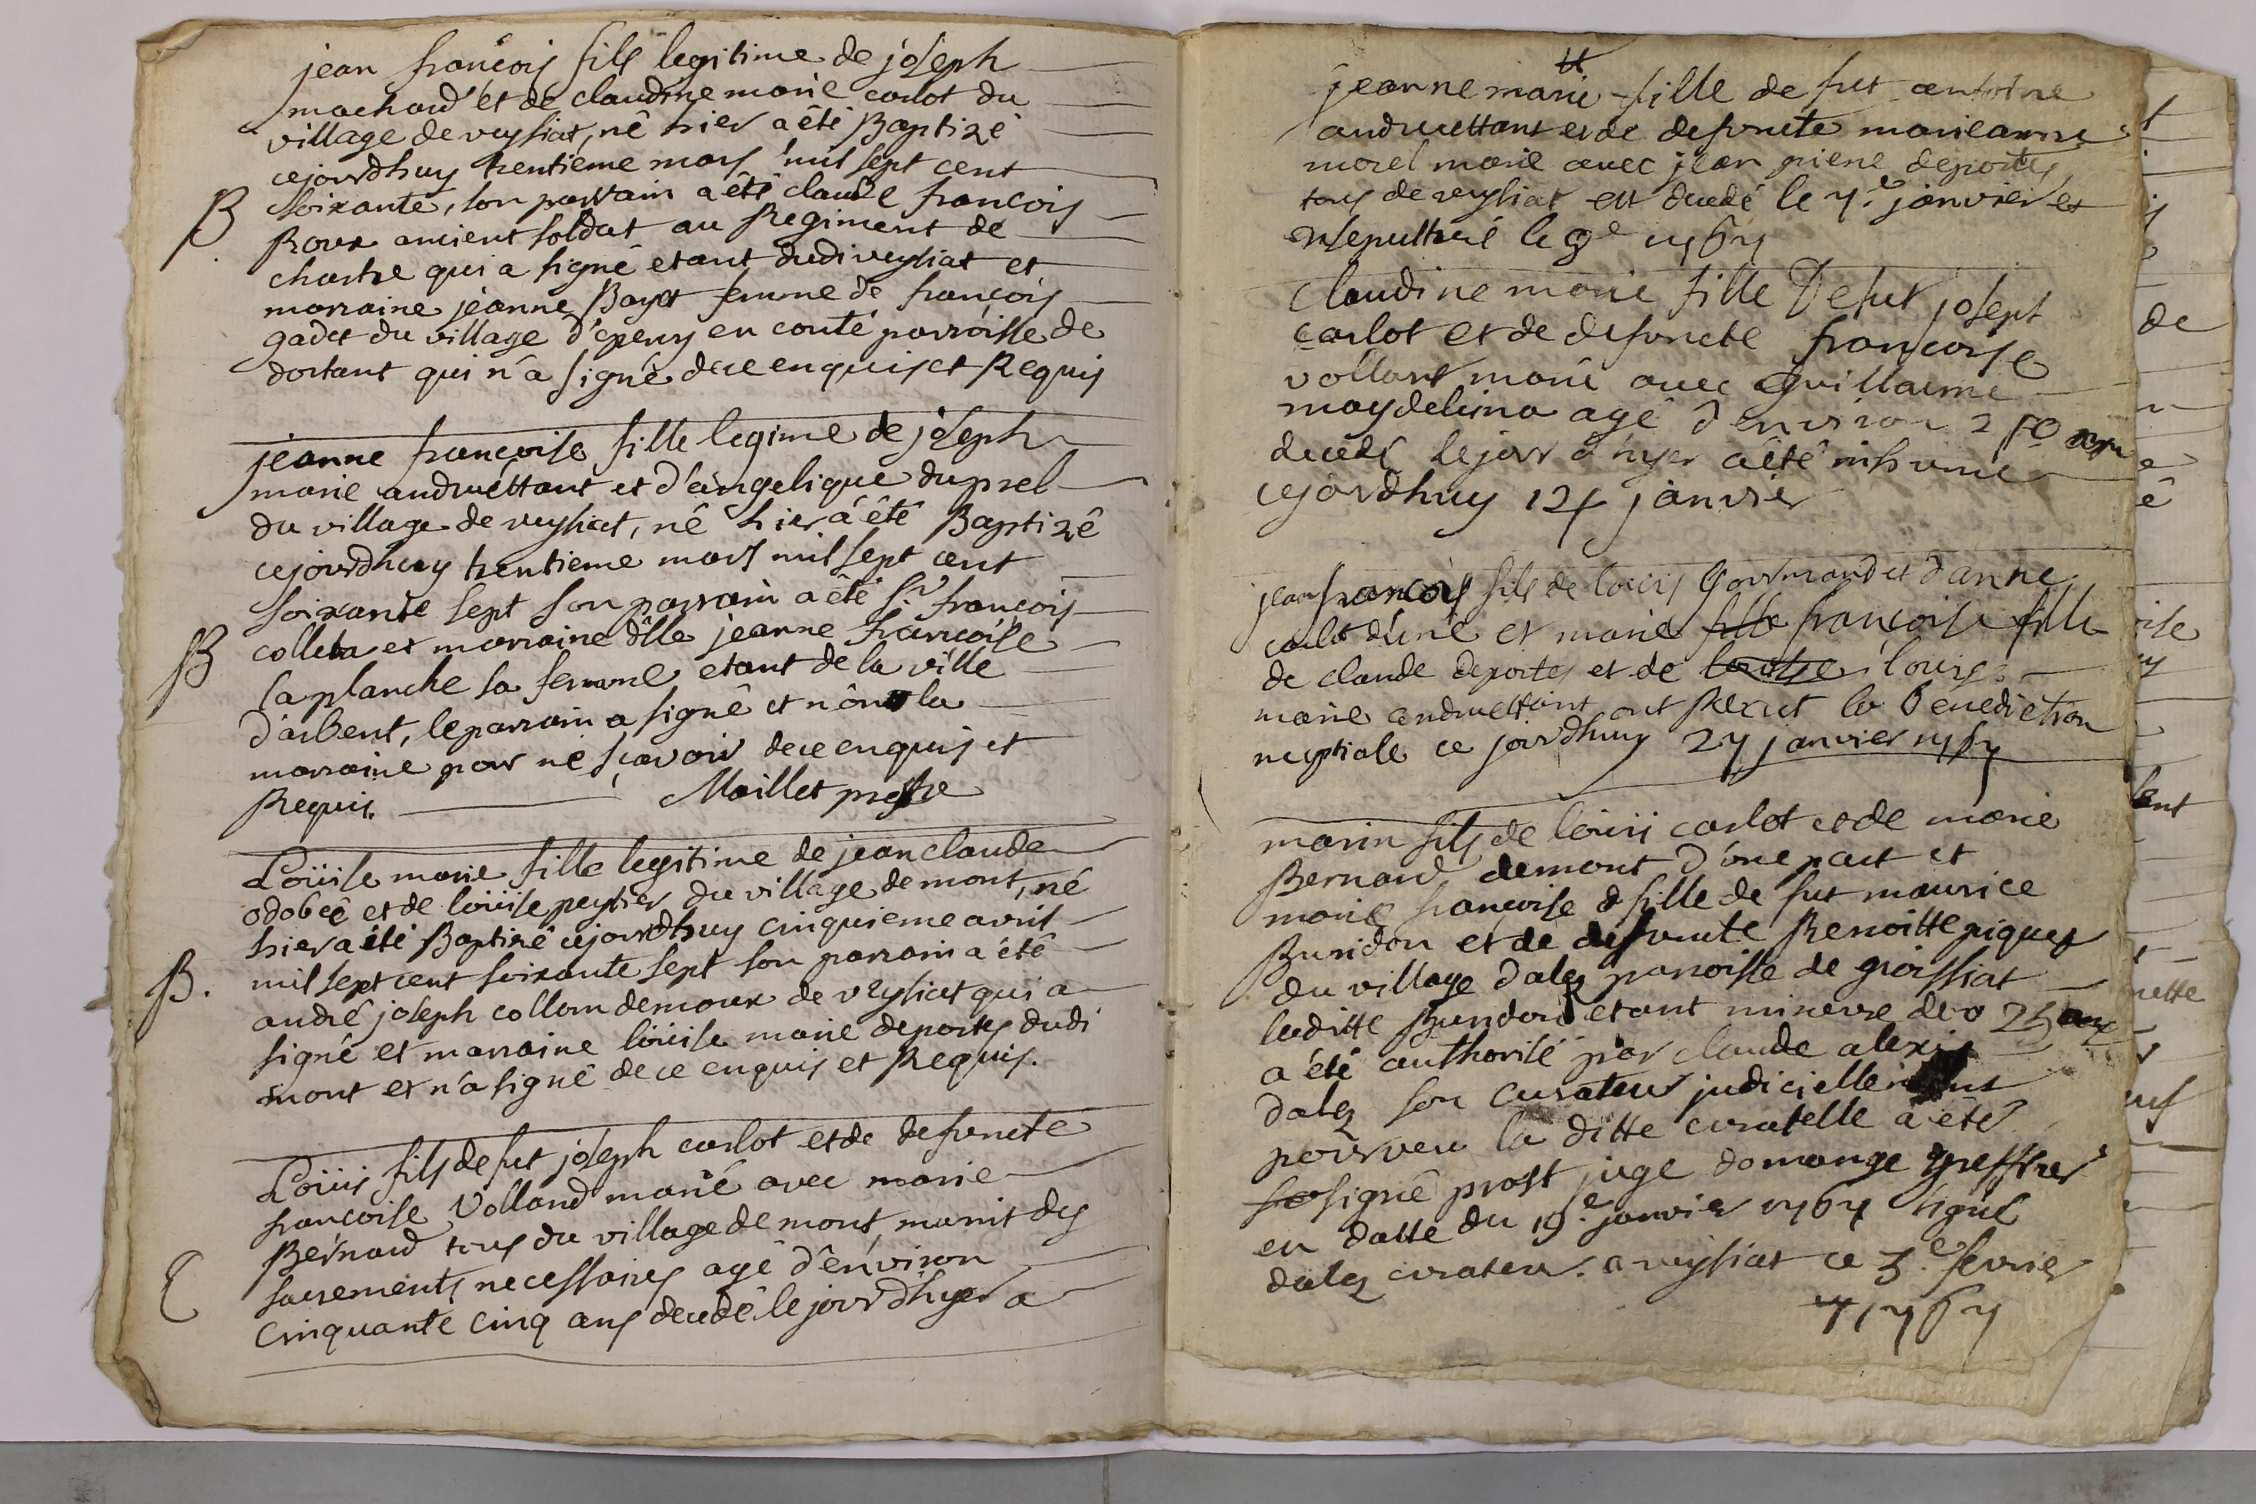 jean françois fils legitime de joseph
machard et de claudine marie carlot du
village de veysiat, né hier a été Baptizé
cejourdhuy trentieme mars mil sept cent
B
soixante, son parrain a été claude francois
Roux ancient soldat au Regiment de
chartre qui a signé etant dudi veysiat et
marraine jeanne Bayet femme de françois
gadet du village d'epeny en conté parroisse de
dortant qui n'a signé de ce enquis et Requis
jeanne francoise fille legime de joseph
marie andruettant et d'angelique duprel
du village de veysiat, né hier a été Baptizé
cejourdhuy trentieme mars mil sept cent
soixante sept son parrain a été sr. françois
B
colleta et marraine dlle jeanne francoise
laplanche sa femme etant de la ville
d'arbent, le parrain a signé et non la
marraine pour ne sçavoir de ce enquis et
Requis. Maillet prestre
Loüise marie fille legitime de jean claude
odobeé et de loüise peytier du village de mont, né
hier a été Baptizé cejourdhuy cinquieme avril
B.
mil sept cent soixante sept son parrain a été
andré joseph collom demoux de veysiat qui a
signé et marraine loüise marie deportes dudi
mont et n'a signé de ce enquis et Requis.
Loüis fils de fut joseph carlot et de defuncte
francoise Volland marié avec marie
Bernard tous du village de mont, munit des
sacrements necessaires agé d'environ
cinquante cinq ans decedé le jour d'hyer a
jeanne marie fille de fut antoine
andruettant et de defuncte marie anne
morel marié avec jean pierre deportes
tous de veysiat est decedé le 7e janvier et
sepulturé le 9e 1767
Claudine marie fille De fut josept
carlot et de defuncte françoise
vollant marié avec guillaume
maydelina agé d'environ 50 ans
decedé le jour d'hyer a été inhumé
cejourdhuy 14 janvier
jean francois fils de louis gourmand et d'anne
carlot d'une et marie fille francoise fille
de claude deportes et de louise louise
marie andruettant ont Receut la benediction
nuptiale ce jourdhuy 27 janvier 1767
marin fils de loüis carlot et de marie
Bernard demont d'une part et
marie francoise fille de fut maurice
Buridon et de defuncte Benoitte piquet
du village d'alez parroisse de groissiat
laditte Buridon etant mineure de 25 ans
a été authorisé par claude alexis
dalez son curateur judiciellement
pourveu la ditte curatelle a été
signé prost juge domange greffier
en datte du 19e janvier 1767 signé
dalez curateur. a veysiat ce 3e fevrier
1767